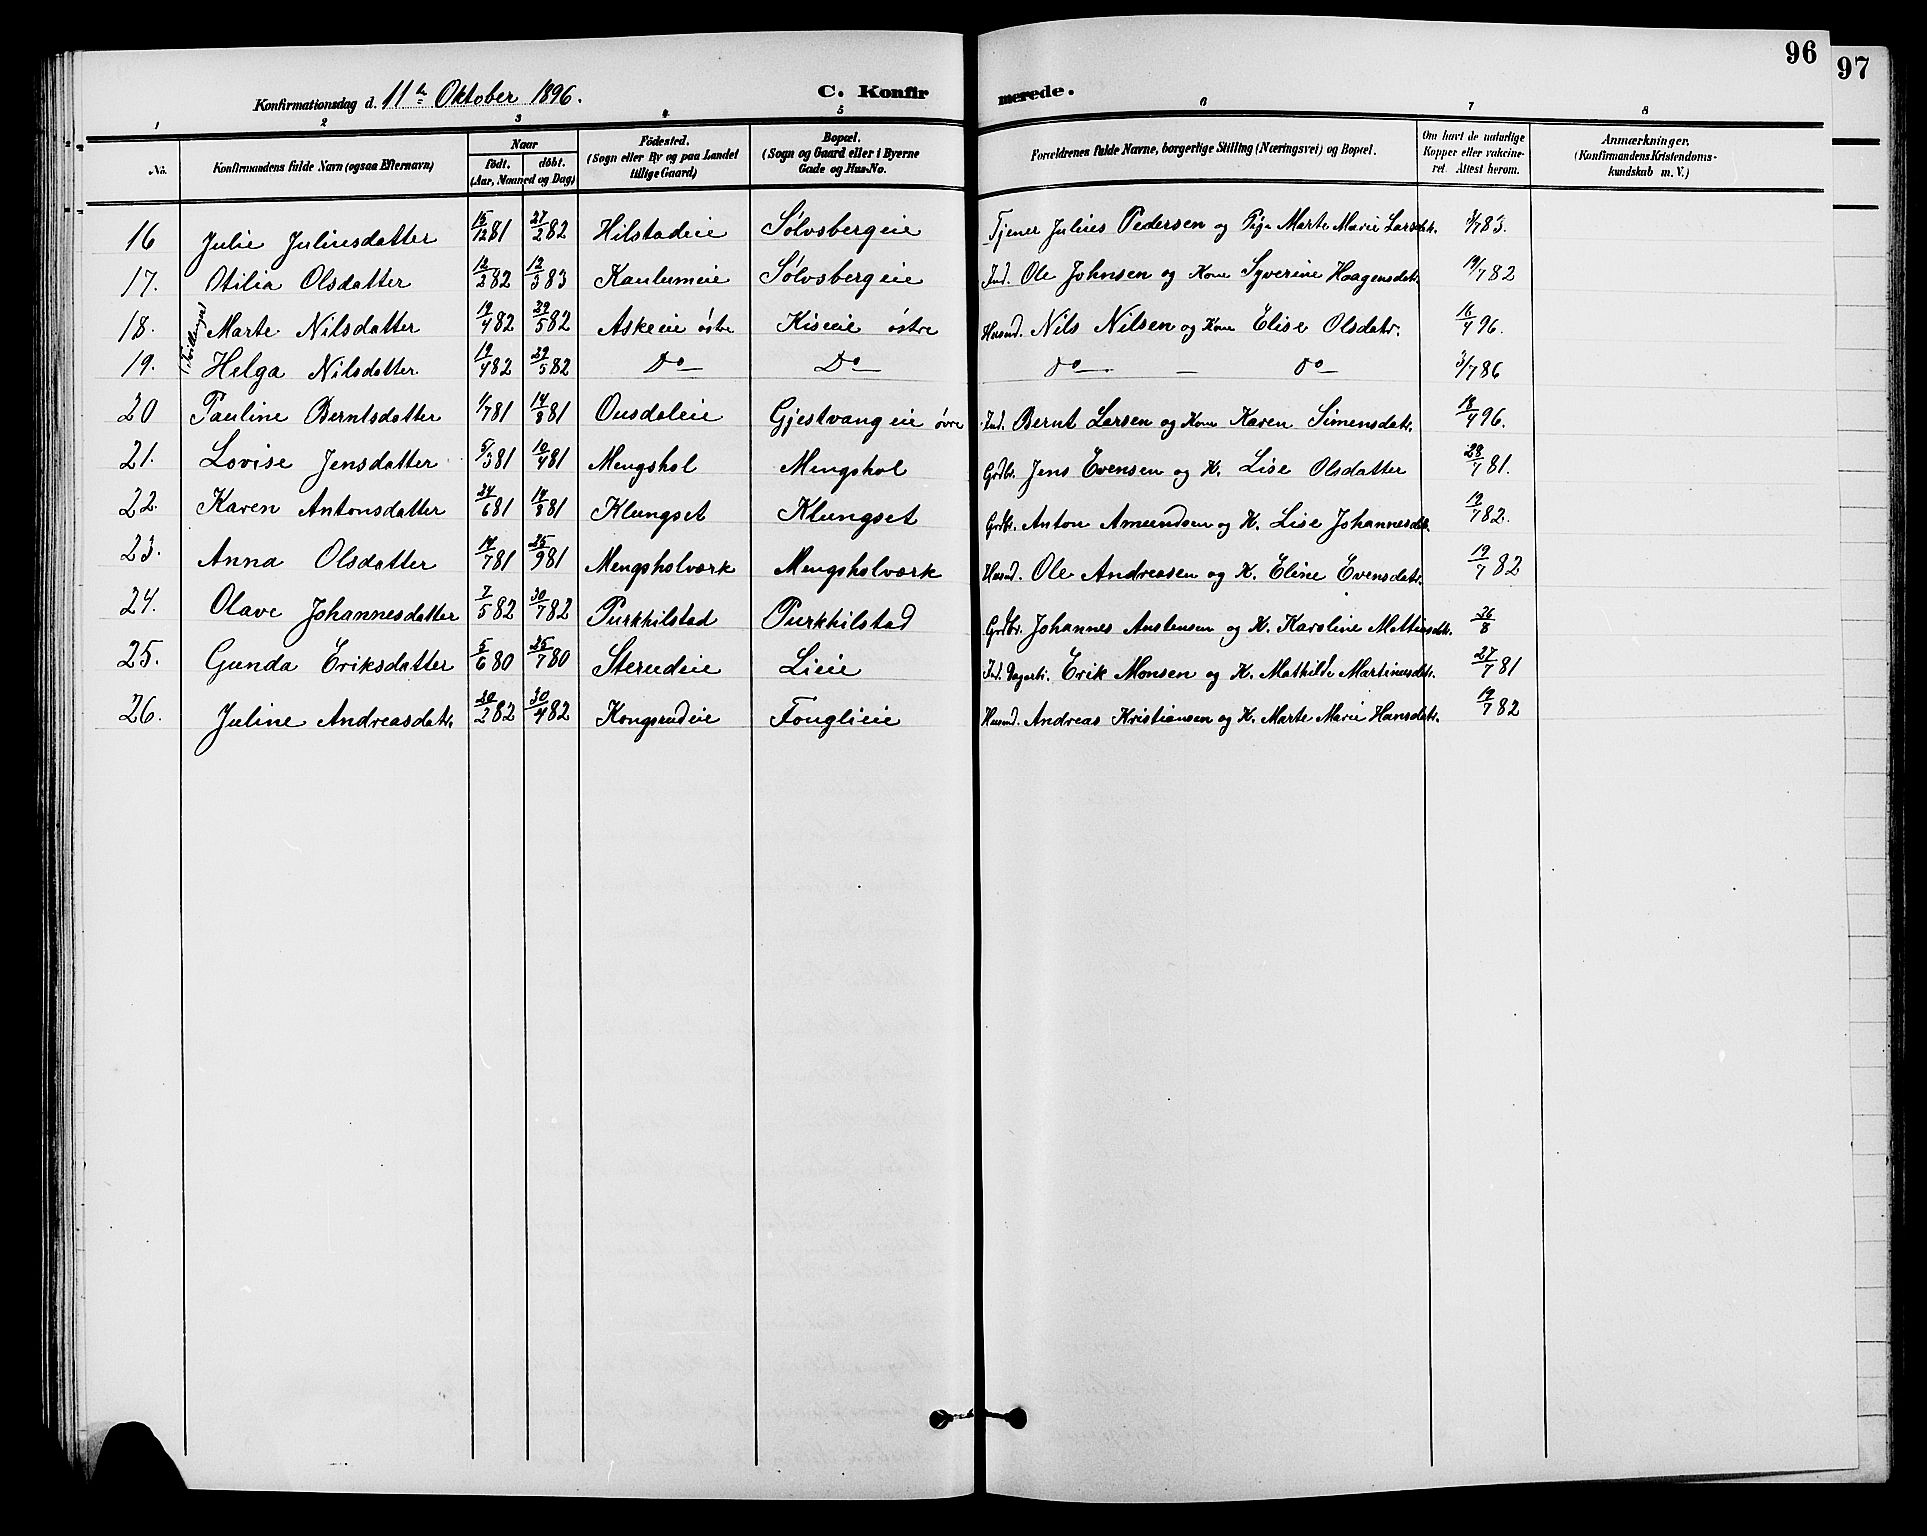 96
97
Konfirmationsdag d. 11te Oktober 1896.
C. Konfirmerede.
1 2 3 4 5 6 7 8
No. Konfirmandens fulde Navn (ogsaa Efternavn) Naar födt. döbt. (Aar, Maaned og Dag) Födested. (Sogn eller By og paa Landet tillige Gaard) Bopæl. (Sogn og Gaard eller i Byerne Gade og Hus-No. Forældrenes fulde Navne, borgerlige Stilling (Næringsvei) og Bopæl. Om havt de naturlige Kopper eller vakcineret. Attest herom. Anmærkninger. (Konfirmandens Kristendomskundskab m. V.)
16 Julie Juliusdatter 15/12 81 27/2 82 Hilstadeie Sølvsbergeie Tjener Julius Pedersen og Pige Marte Marie Larsdtr. /7 83.
17. Otilia Olsdatter 12/2 82 12/3 83 Kaulumeie Sølvsbergeie Ind. Ole Johnsen og Kone Syverine Haagensdat. 19/7 82
18. (Tvillinger) Marte Nilsdatter 19/4 82 29/5 82 Askeeie østre Kiseeie østre Husmd. Nils Nilsen og Kone Elise Olsdatr. 16/4 96.
19. Helga Nilsdatter 19/4 82 29/5 82 Do Do Do — Do 3/7 86
20 Pauline Berntsdatter 1/7 81 14/8 81 Ousdaleie Gjestvangeie øvre Ind. Bernt Larsen og Kone Karen Simensdatr. 18/4 96.
21. Lovise Jensdatter 5/3 81 10/4 81 Mengshol Mengshol Grdbr. Jens Evensen og K. Lise Olsdatter 28/7 81.
22. Karen Antonsdatter 24/6 81 14/8 81 Klungset Klungset Grdbr. Anton Amundsen og K. Lise Johannesdtr. 19/7 82.
23. Anna Olsdatter 14/7 81 25/9 81 Mengsholværk Mengsholværk Husmd. Ole Andreasen og K. Eline Evensdatr. 19/7 82
24. Olave Johannesdatter 7/5 82 30/7 82 Purkhilstad Purkhilstad Grdbr. Johannes Anstensen og K. Karoline Mattisdtr. 26/8
25. Gunda Eriksdatter 5/6 80 25/7 80 Sterudeie Lieie Ind. Dagarb. Erik Monsen og K. Mathilde Martinusdtr. 27/7 81
26. Juline Andreasdatr. 20/2 82 30/4 82 Kongsrudeie Fonglieie Husmd. Andreas Kristiansen og K. Marte Marie Hansdatr. 19/7 82